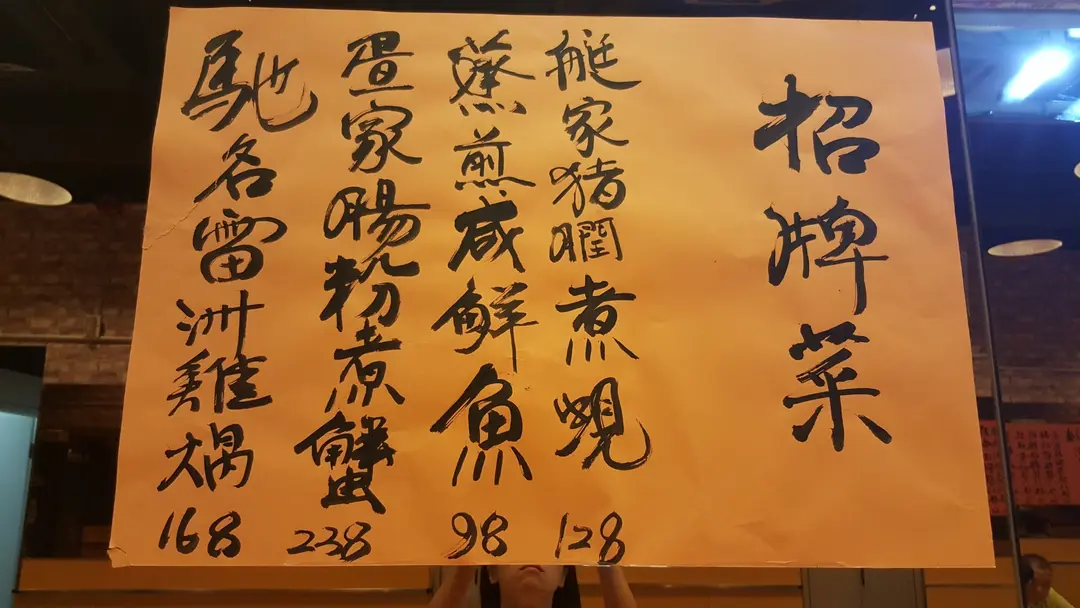 招牌菜
艇家猪膶煮蜆 128
蒸煎咸鮮魚 98
疍家腸粉煮蟹 238
馳名雷洲雞煱 168